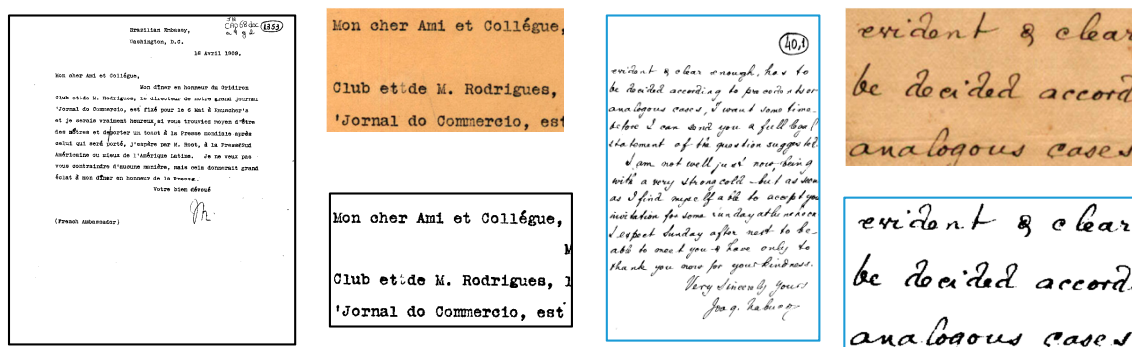 Brazilian Embassy,
Washington, D.C.
1353
18 Avril 1909.
Mon cher Ami et Collégue,
Mon dîner en honneur du Gridiron
Club et de M. Rodrigues, le directeur de notre grand journal
'Jornal do Commercio, est fixé pour le 6 Mai à Rauscher's
et je serais vraiment heureux, si vous trouviez moyen d'être
des nôtres et de porter un toast à la Presse mondiale après
celui qui sera porté, j'espère par M. Root, à la Presse Sud
Américaine ou mieux de l'Amérique Latine. Je ne veux pas
vous contraindre d'aucune manière, mais cela donnerait grand
éclat à mon dîner en honneur de la Presse.
Votre bien dévoué
(French Ambassador)
Mon cher Ami et Collégue,
Club et de M. Rodrigues,
'Jornal do Commercio, est
Mon cher Ami et Collégue,
M
Club et de M. Rodrigues, l
'Jornal do Commercio, est
40,1
evident & clear enough, has to
be decided according to precedents or
analogous cases, I want some time
before I can send you a full legal
statement of the question suggested.
I am not well just now being
with a very strong cold - but as soon
as I find myself able to accept your
invitation for some sunday at
I expect Sunday after next to be
able to meet you & have only to
thank you now for your kindness.
Very Sincerely yours
Joaq. Nabuco
evident & clear
be decided accord
analogous cases
evident & clear
be decided accord
analogous cases